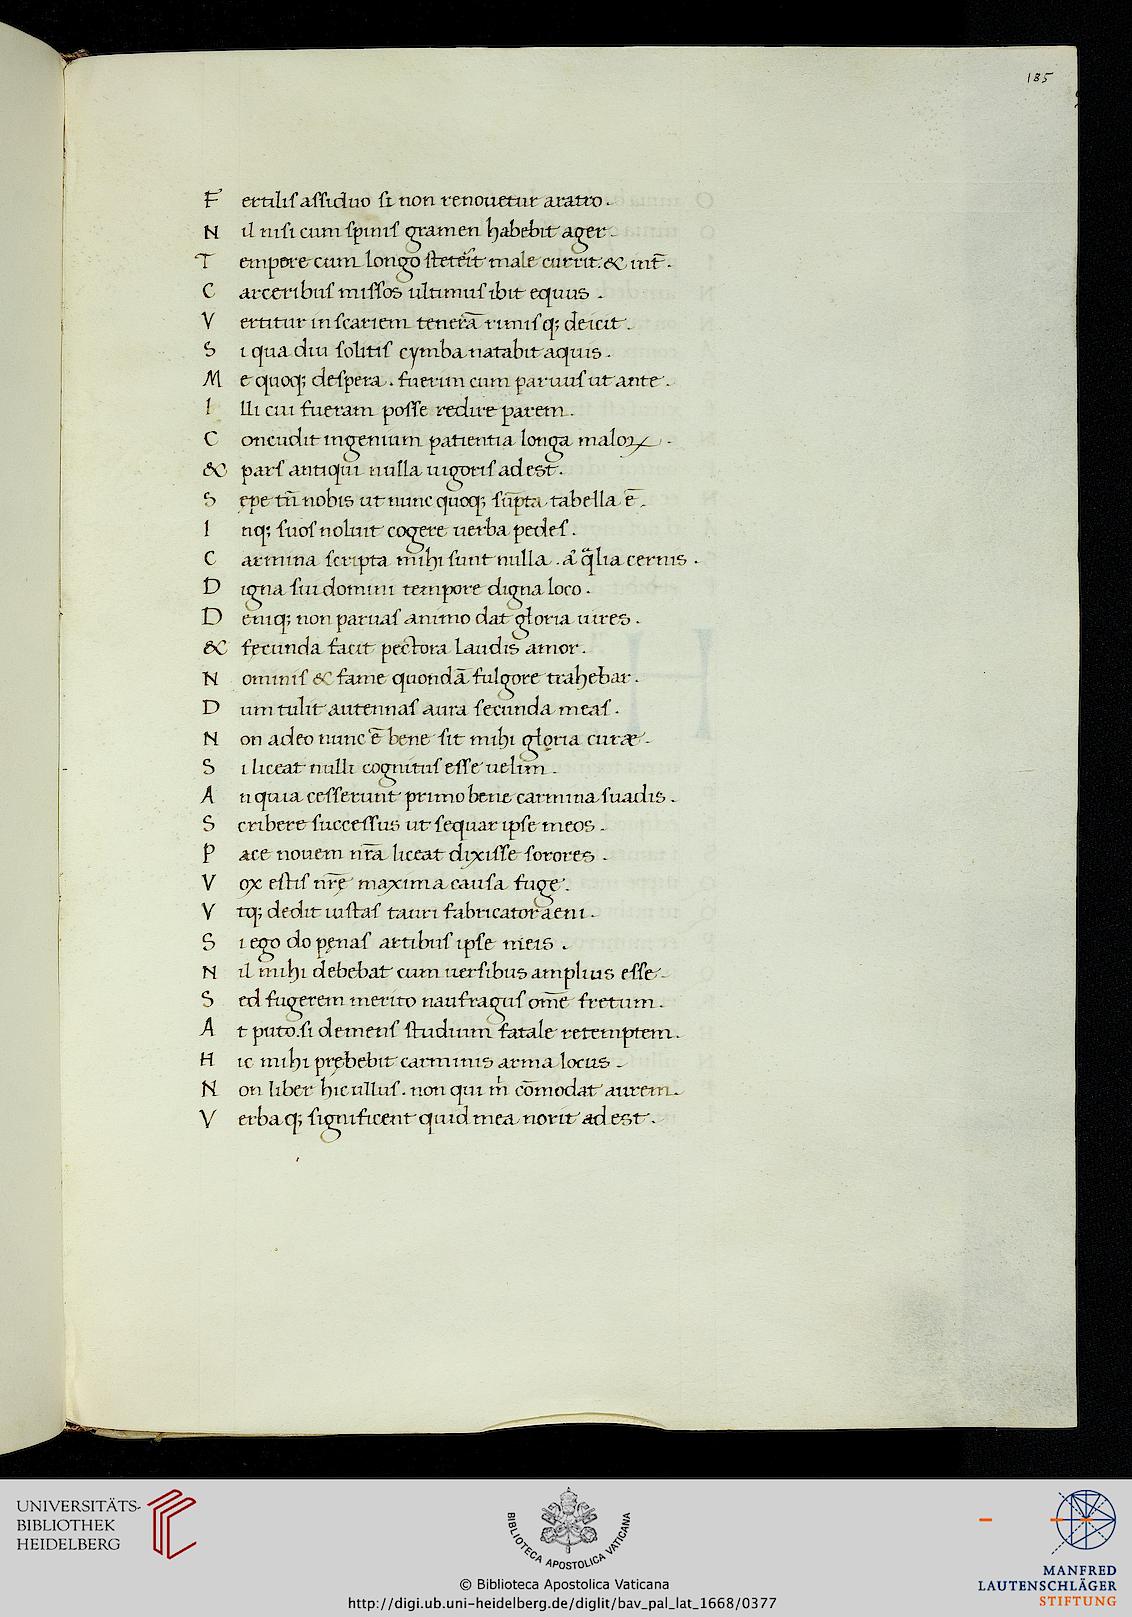 185
F ertilis assiduo si non renouetur aratro.
N il nisi cum spinis gramen habebit ager.
T empore cum longo steterit male currit. & int̄.
C arceribus missos ultimus ibit equus.
V ertitur in scariem tenerā rimisq; deicit.
S i qua diu solitis cymba natabit aquis.
M e quoq; despera. fuerim cum paruus ut ante.
I lli cui fueram posse redire parem.
C oncudit ingenium patientia longa maloꝝ.
& pars antiqui nulla uigoris adest.
S ępe tn̄ nobis ut nunc quoq; sūpta tabella ē.
I nq; suos noluit cogere uerba pedes.
C armina scripta mihi sunt nulla. at qualia cernis.
D igna sui domini tempore digna loco.
D eniq; non paruas animo dat gloria uires.
& fęcunda facit pectora laudis amor.
N ominis & fame quondā fulgore trahebar.
D um tulit autennas aura secunda meas.
N on adeo nunc ē bene sit mihi gloria curæ.
S i liceat nulli cognitus esse uelim.
A n quia cesserunt primo bene carmina suadis.
S cribere successus ut sequar ipse meos.
P ace nouem nr̄a liceat dixisse sorores.
V ox estis nr̄ę maxima causa fuge.
V tq; dedit iustas tauri fabricator aeni.
S i ego do pęnas artibus ipse meis.
N il mihi debebat cum uersibus amplius esse.
S ed fugerem merito naufragus om̄e fretum.
A t puto. si demens studium fatale retemptem.
H ic mihi prębebit carminis arma locus.
N on liber hic ullus. non qui m̄ cōmodat aurem.
V erbaq; significent quid mea norit adest.
UNIVERSITÄTS-
BIBLIOTHEK
HEIDELBERG
BIBLIOTECA APOSTOLICA VATICANA
MANFRED
LAUTENSCHLÄGER
STIFTUNG
© Biblioteca Apostolica Vaticana
http://digi.ub.uni-heidelberg.de/diglit/bav_pal_lat_1668/0377